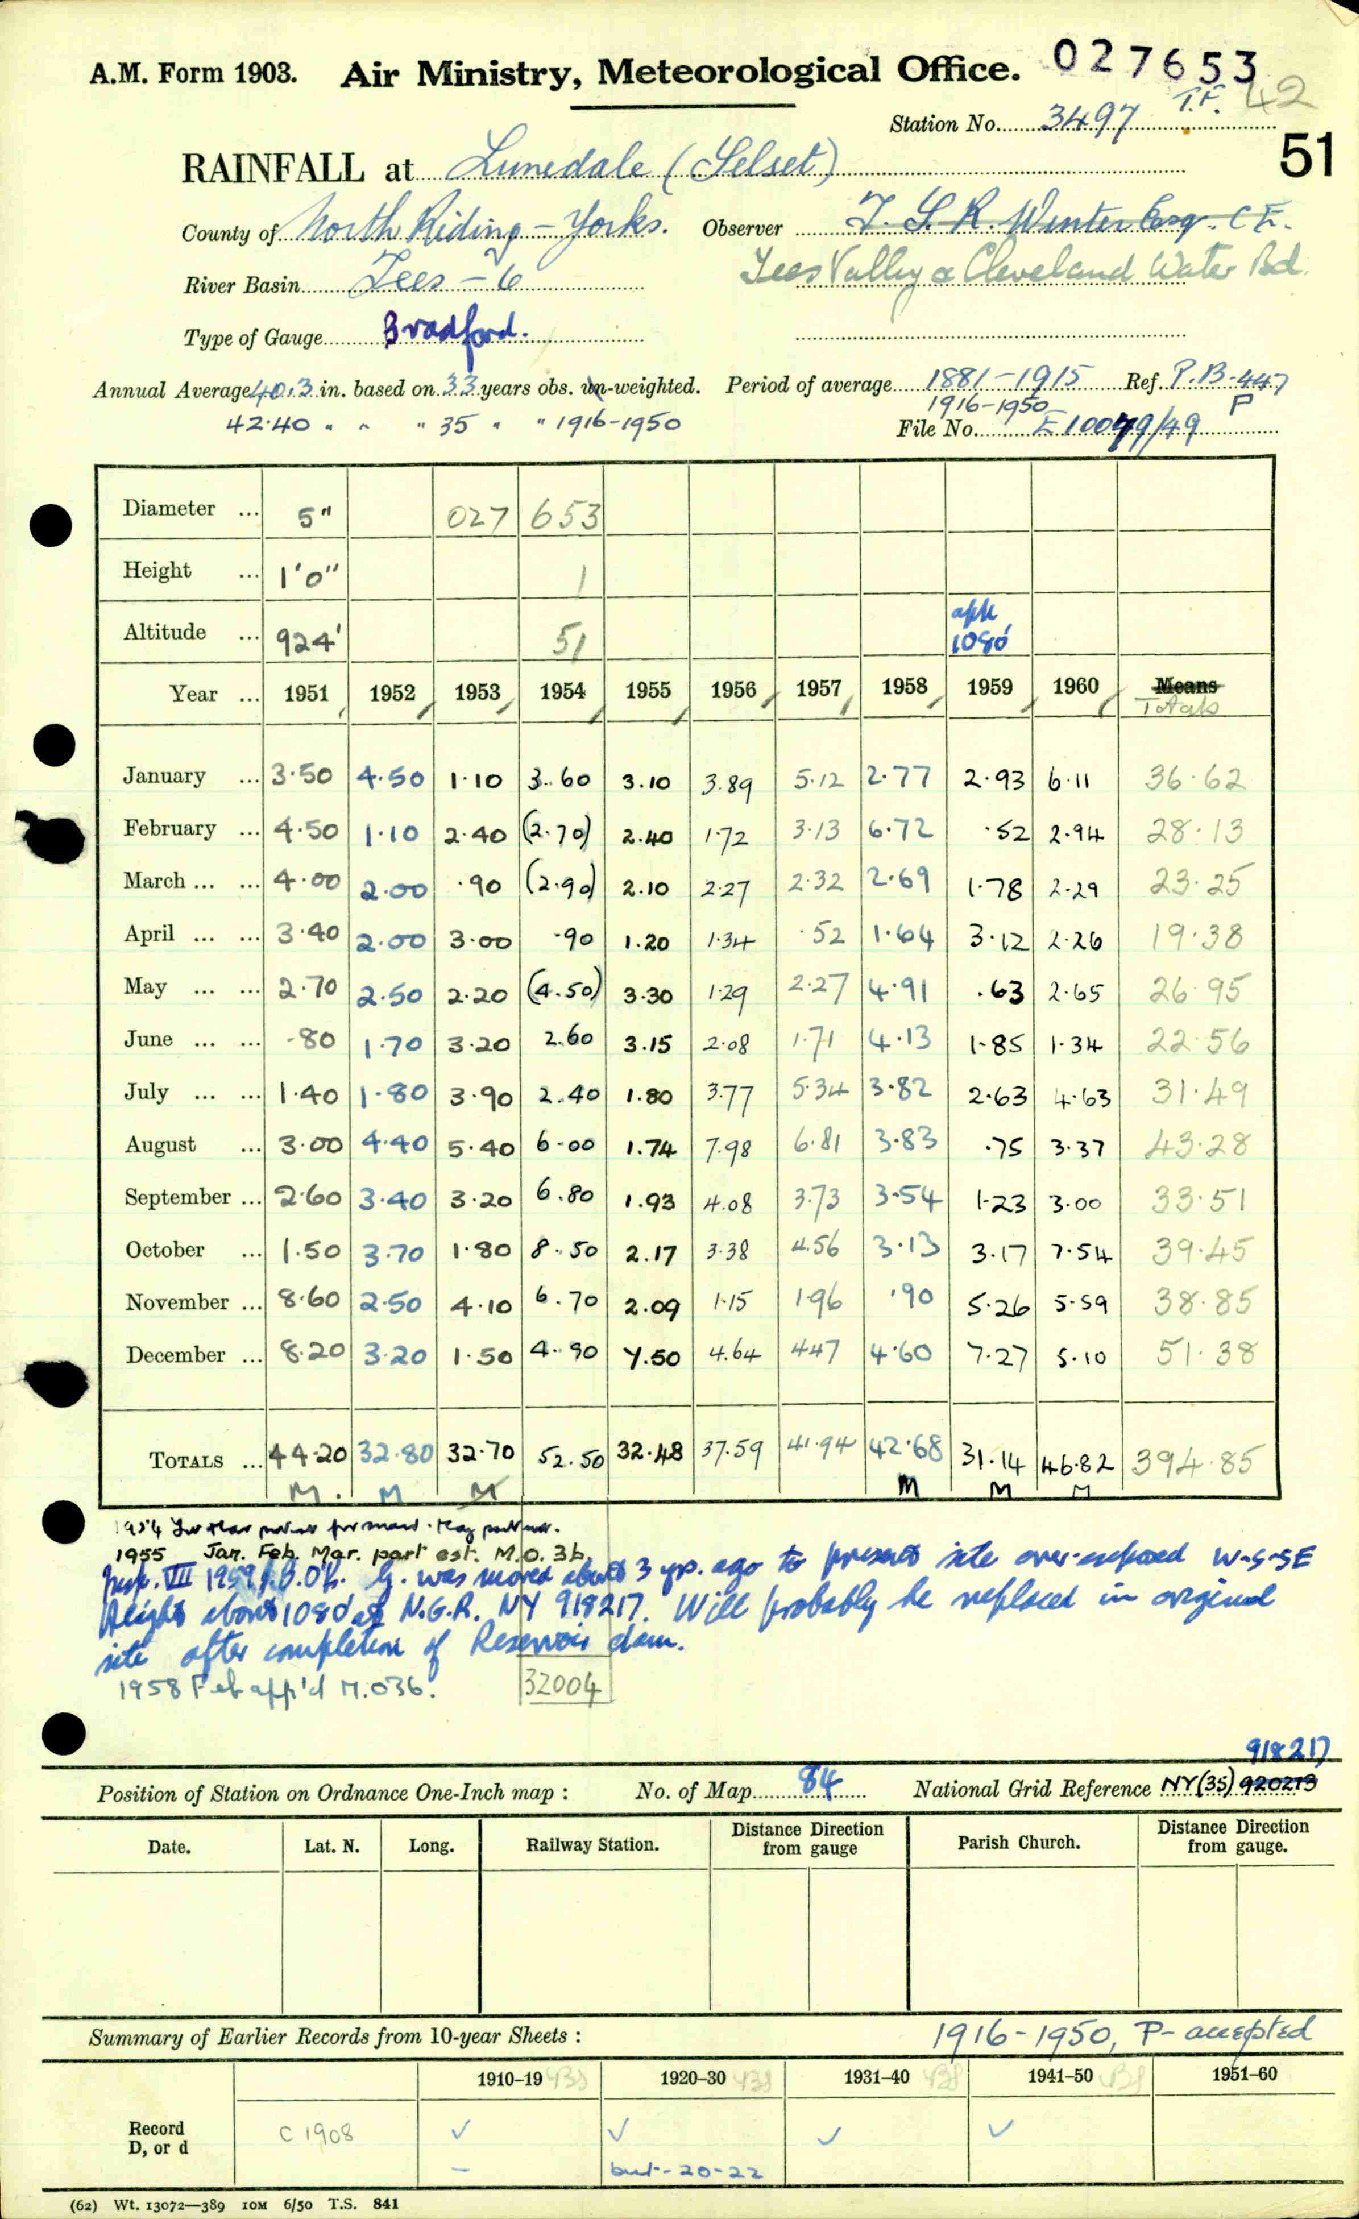 A.M. Form 1903. Air Ministry, Meteorological Office. 027653
T.F. 42
Station No. 3497
51
RAINFALL at Lunedale (Selset)
County of North Riding - Yorks. Observer T. S. R. Winter Esq. C.E.
River Basin Tees - 6 Tees Valley & Cleveland Water Bd.
Type of Gauge Bradford.
Annual Average 40.3 in. based on 33 years obs. un-weighted. Period of average 1881-1915 Ref. P.B. 447
42.40 " " " 35 " " 1916-1950 1916-1950 P
File No. E10079/49
Diameter ... 5" 027 653
Height ... 1'0" 1
Altitude ... 924' 51 1080'
Year ... 1951 1952 1953 1954 1955 1956 1957 1958 1959 1960 Means
Totals
January ... 3.50 4.50 1.10 3.60 3.10 3.89 5.12 2.77 2.93 6.11 36.62
February ... 4.50 1.10 2.40 (2.70) 2.40 1.72 3.13 6.72 .52 2.94 28.13
March ... ... 4.00 2.00 .90 (2.90) 2.10 2.27 2.32 2.69 1.78 2.29 23.25
April ... ... 3.40 2.00 3.00 .90 1.20 1.34 .52 1.64 3.12 2.26 19.38
May ... ... 2.70 2.50 2.20 (4.50) 3.30 1.29 2.27 4.91 .63 2.65 26.95
June ... ... .80 1.70 3.20 2.60 3.15 2.08 1.71 4.13 1.85 1.34 22.56
July ... ... 1.40 1.80 3.90 2.40 1.80 3.77 5.34 3.82 2.63 4.63 31.49
August ... 3.00 4.40 5.40 6.00 1.74 7.98 6.81 3.83 .75 3.37 43.28
September ... 2.60 3.40 3.20 6.80 1.93 4.08 3.73 3.54 1.23 3.00 33.51
October ... 1.50 3.70 1.80 8.50 2.17 3.38 4.56 3.13 3.17 7.54 39.45
November ... 8.60 2.50 4.10 6.70 2.09 1.15 1.96 .90 5.26 5.59 38.85
December ... 8.20 3.20 1.50 4.90 7.50 4.64 4.47 4.60 7.27 5.10 51.38
TOTALS ... 44.20 32.80 32.70 52.50 32.48 37.59 41.94 42.68 31.14 46.82 394.85
M. M M M M M
1954
1955 Jan. Feb. Mar. part est. M.O.3b.
Insp. VII 1959 G. was moved about 3 yrs. ago to present site over-exposed W-S-SE
Height about 1080 at N.G.R. NY 918217. Will probably be replaced in original
site after completion of Reservoir dam.
1958 Feb app'd M.O3b. 32004
918217
Position of Station on Ordnance One-Inch map : No. of Map 84 National Grid Reference NY(35) 920213
Date. Lat. N. Long. Railway Station. Distance Direction from gauge Parish Church. Distance Direction from gauge.
Summary of Earlier Records from 10-year Sheets : 1916-1950, P- accepted
1910-19 1920-30 1931-40 1941-50 1951-60
Record D, or d C 1908 ✓ ✓ ✓ ✓
- but - 20-22
(62) Wt. 13072—389 10M 6/50 T.S. 841